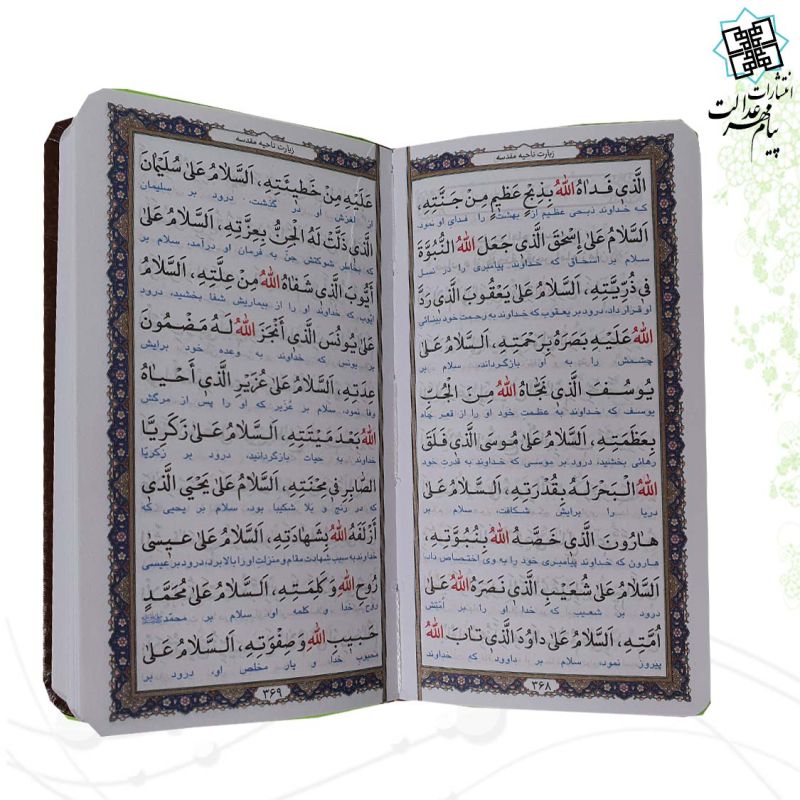 انتشارات
پیام مهر عدالت
زیارت ناحیه مقدسه
الَّذِی فَدَاهُ اللهُ بِذِبْحٍ عَظِیمٍ مِنْ جَنَّتِهِ،
که خداوند ذبحی عظیم از بهشت را فدای او نمود
اَلسَّلَامُ عَلىٰ إِسْحٰقَ الَّذِی جَعَلَ اللهُ النُّبُوَّةَ
سلام بر اسحاق که خداوند پیامبری را در نسل
فِی ذُرِّیَّتِهِ، اَلسَّلَامُ عَلىٰ یَعْقُوبَ الَّذِی رَدَّ
او قرار داد، درود بر یعقوب که خداوند به رحمت خود بینائی
اللهُ عَلَیْهِ بَصَرَهُ بِرَحْمَتِهِ، اَلسَّلَامُ عَلىٰ
چشمش را به او بازگرداند، سلام بر
یُوسُفَ الَّذِی نَجَّاهُ اللهُ مِنَ الْجُبِّ
یوسف که خداوند به عظمت خود او را از قعر چاه
بِعَظَمَتِهِ، اَلسَّلَامُ عَلىٰ مُوسَى الَّذِی فَلَقَ
رهائی بخشید، درود بر موسی که خداوند به قدرت خود
اللهُ الْبَحْرَ لَهُ بِقُدْرَتِهِ، اَلسَّلَامُ عَلىٰ
دریا را برایش شکافت، سلام بر
هَارُونَ الَّذِی خَصَّهُ اللهُ بِنُبُوَّتِهِ،
هارون که خداوند پیامبری خود را به وی اختصاص داد،
اَلسَّلَامُ عَلىٰ شُعَیْبٍ الَّذِی نَصَرَهُ اللهُ عَلىٰ
درود بر شعیب که خدا او را بر امّتش
اُمَّتِهِ، اَلسَّلَامُ عَلىٰ دَاوُدَ الَّذِی تَابَ اللهُ
پیروز نمود، سلام بر داوود که خداوند
۳۶۸
زیارت ناحیه مقدسه
عَلَیْهِ مِنْ خَطِیئَتِهِ، اَلسَّلَامُ عَلىٰ سُلَیْمَانَ
از لغزش او در گذشت، درود بر سلیمان
الَّذِی ذَلَّتْ لَهُ الْجِنُّ بِعِزَّتِهِ، اَلسَّلَامُ عَلىٰ
که بخاطر شوکتش جنّ به فرمان او درآمد، سلام بر
أَیُّوبَ الَّذِی شَفَاهُ اللهُ مِنْ عِلَّتِهِ، اَلسَّلَامُ
ایّوب که خداوند او را از بیماریش شفا بخشید، درود
عَلىٰ یُونُسَ الَّذِی أَنْجَزَ اللهُ لَهُ مَضْمُونَ
بر یونس که خداوند به وعده خود برایش
عِدَتِهِ، اَلسَّلَامُ عَلىٰ عُزَیْرٍ الَّذِی أَحْیَاهُ
وفا نمود، سلام بر عُزیر که او را پس از مرگش
اللهُ بَعْدَ مَیْتَتِهِ، اَلسَّلَامُ عَلىٰ زَکَرِیَّا
خداوند به حیات بازگردانید، درود بر زکریّا
الصَّابِرِ فِی مِحْنَتِهِ، اَلسَّلَامُ عَلىٰ یَحْیَى الَّذِی
که در رنج و بلا شکیبا بود، سلام بر یحیی که
أَزْلَفَهُ اللهُ بِشَهَادَتِهِ، اَلسَّلَامُ عَلىٰ عِیسىٰ
خداوند به سبب شهادت مقام و منزلت او را بالا برد، درود بر عیسی
رُوحِ اللهِ وَکَلِمَتِهِ، اَلسَّلَامُ عَلىٰ مُحَمَّدٍ
روح خدا و کلمه او، سلام بر محمّد
حَبِیبِ اللهِ وَصِفْوَتِهِ، اَلسَّلَامُ عَلىٰ
محبوب خدا و یار مخلص او، درود بر
۳۶۹